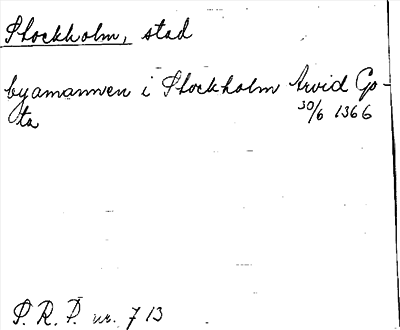 Stockholm, stad
byamannen i Stockholm Arvid Go-
ta
30/6 1366
P. R. P. nr. 713